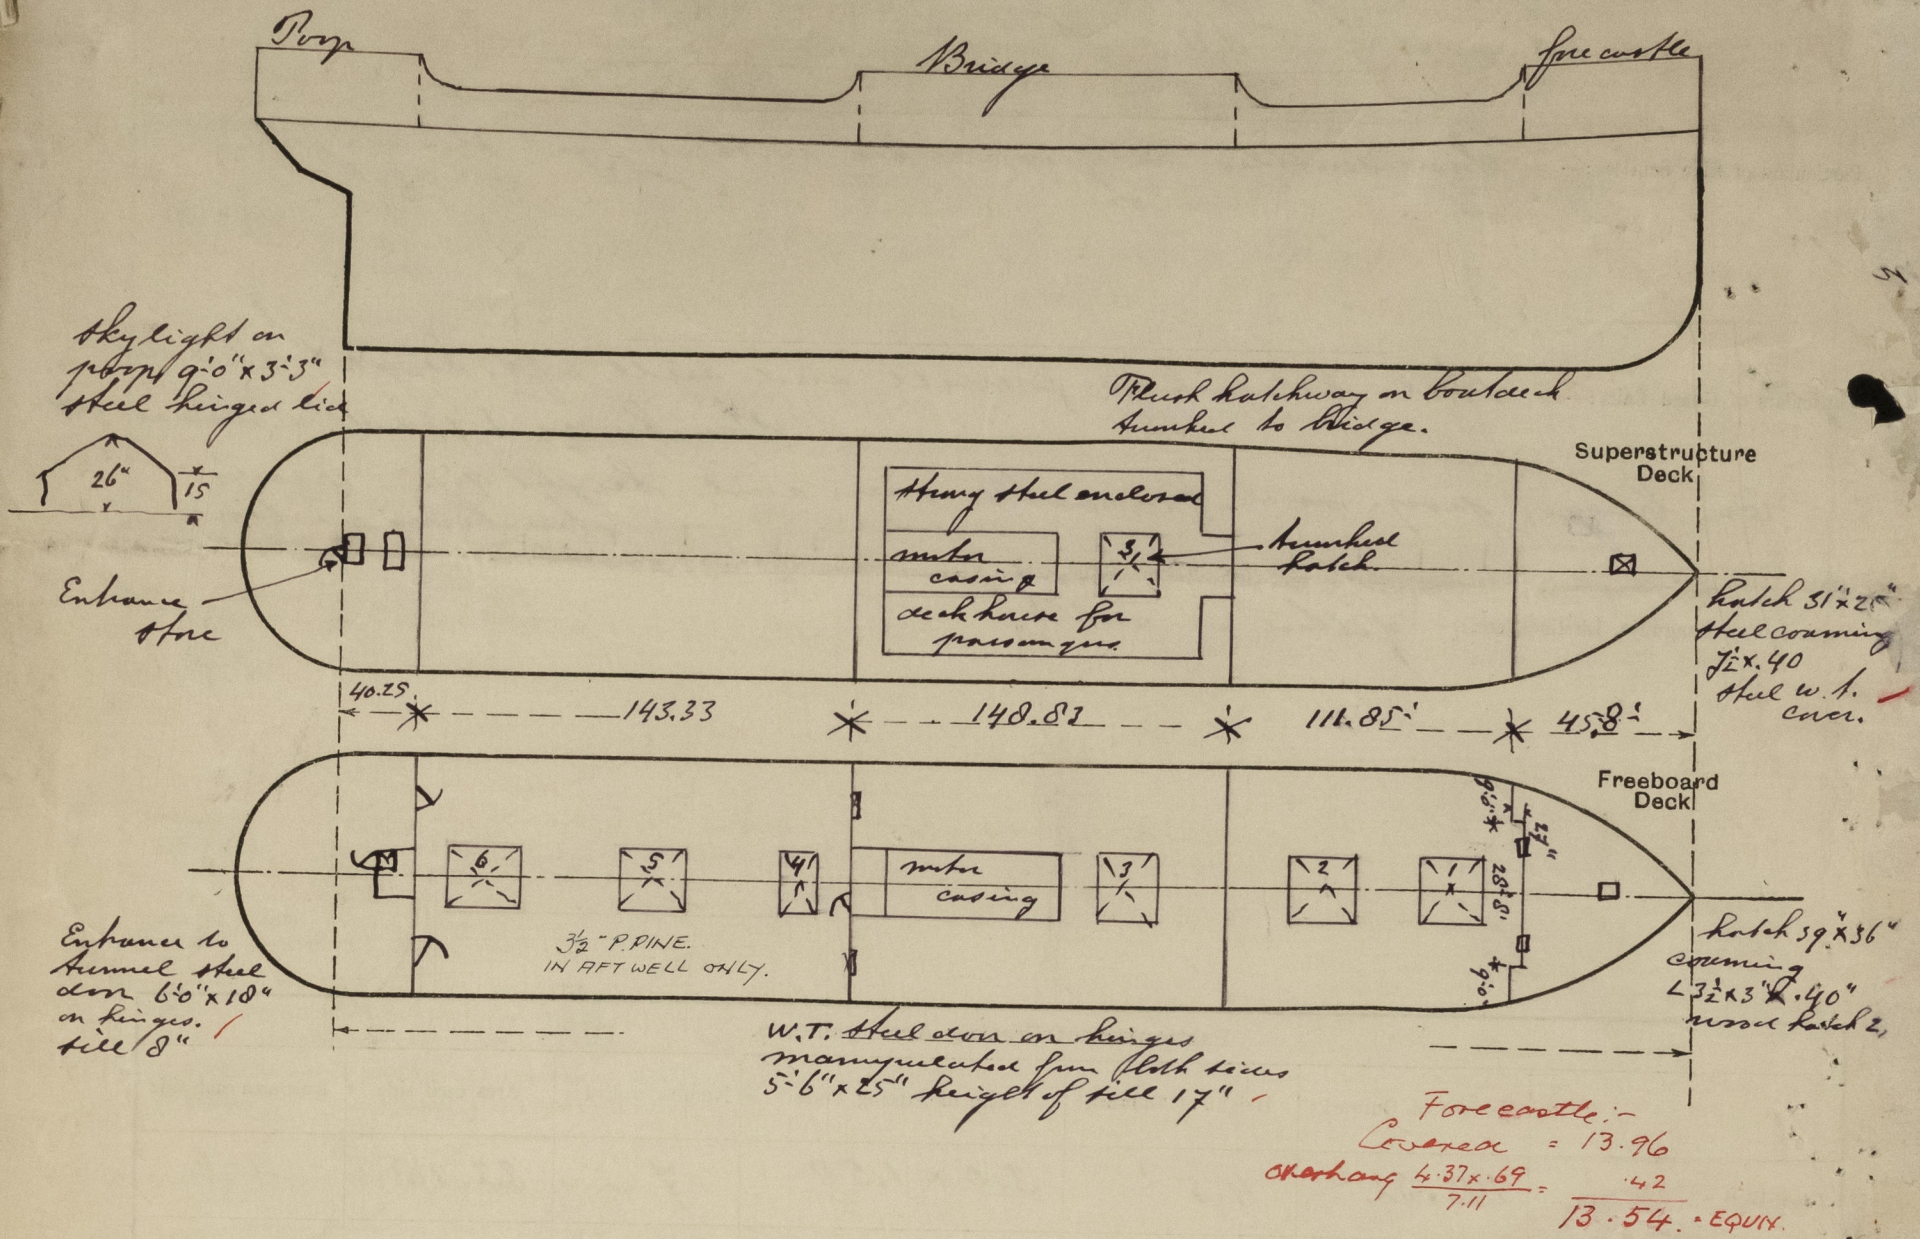 Poop
Bridge
forecastle
skylight on
poop 9'-0" x 3'-3"
steel hinged lid
26"
15
Flush hatchway on boatdeck
trunked to bridge.
Superstructure
Deck
strong steel enclosed
motor
casing
3
trunked
hatch
deckhouse for
passengers.
Entrance
store
hatch 31" x
steel coaming
7½ x .40
steel w.t.
cover.
40.25
143.33
148.83
111.85'
45.8'
Freeboard
Deck
9'.0"
27"
6
5
4
motor
casing
3
2
1
28'.8"
9'.0"
3½" P. PINE.
IN AFT WELL ONLY.
Entrance to
tunnel steel
door 6'-0" x 18"
on hinges.
sill 8"
hatch 39" x 36"
coaming
L 3½ x 3" x .40"
wood hatch 2
W.T. steel door on hinges
manipulated from both sides
5'-6" x 25" height of sill 17"
Forecastle:-
Covered = 13.96
overhang 4.37 x .69 / 7.11 = .42
13.54. = EQUIV.